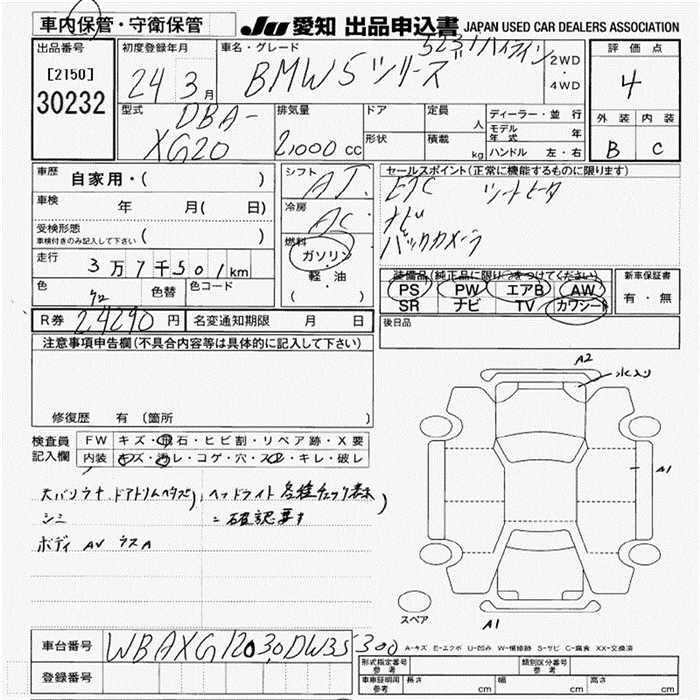 車内保管・守衛保管
JU 愛知 出品申込書 JAPAN USED CAR DEALERS ASSOCIATION
出品番号
[2150]
30232
初度登録年月
24 3月
車名・グレード
523iハイライン
BMW5シリーズ
2WD
・
4WD
評価点
4
外装 内装
B C
型式
DBA-
XG20
排気量
2,000cc
ドア
形状
定員 人
積載 kg
ディーラー・並行
モデル年式 年
ハンドル 左・右
車歴
自家用・( )
車検 年 月( 日)
受検形態
車検付きのみ記入して下さい ( )
走行
3万7千501km
色
色替
色コード
シフト
AT
冷房
AC
燃料
ガソリン
・
軽・油
( )
セールスポイント(正常に機能するものに限ります)
ETC シートヒータ
ナビ
バックカメラ
装備品(純正品に限り○をつけてください)
PS PW エアB AW
SR ナビ TV カワシート
新車保証書
有・無
後日品
R券 24290円
名変通知期限 月 日
注意事項申告欄(不具合内容等は具体的に記入して下さい)
修復歴 有(箇所 )
検査員
記入欄
FW キズ・飛石・ヒビ割・リペア跡・X要
内装 キズ・汚レ・コゲ・穴・スレ・キレ・破レ
ヘッドライト
シミ
確認要す
ボディ AV ラスA
A2
水入り
A1
A1
スペア
A-キズ E-エクボ U-凹み W-補修跡 S-サビ C-腐食 XX-交換済
車台番号
WBAXG12030DW35300
登録番号
形式指定番号
参考
類別区分番号
参考
車庫証明用
参考
長さ cm 幅 cm 高さ cm